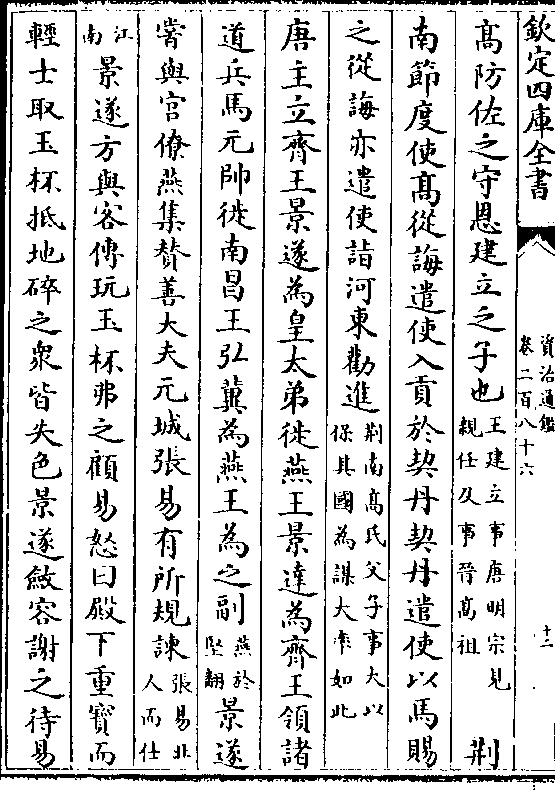 欽定四庫全書
資治通鑑
卷二百八十六
十二
髙防佐之守恩建立之子也王建立事唐明宗見親任及事晉髙祖荆
南節度使髙從誨遣使入貢於契丹契丹遣使以馬賜
之從誨亦遣使詣河東勸進荆南髙氏父子事大以保其國為謀大率如此
唐主立齊王景遂為皇太弟徙燕王景達為齊王領諸
道兵馬元帥徙南昌王弘冀為燕王為之副燕於堅翻景遂
嘗與官僚燕集贊善大夫元城張易有所規諫張易北人而仕
江南景遂方與客傳玩玉杯弗之顧易怒曰殿下重寳而
輕士取玉杯抵地碎之衆皆失色景遂斂容謝之待易